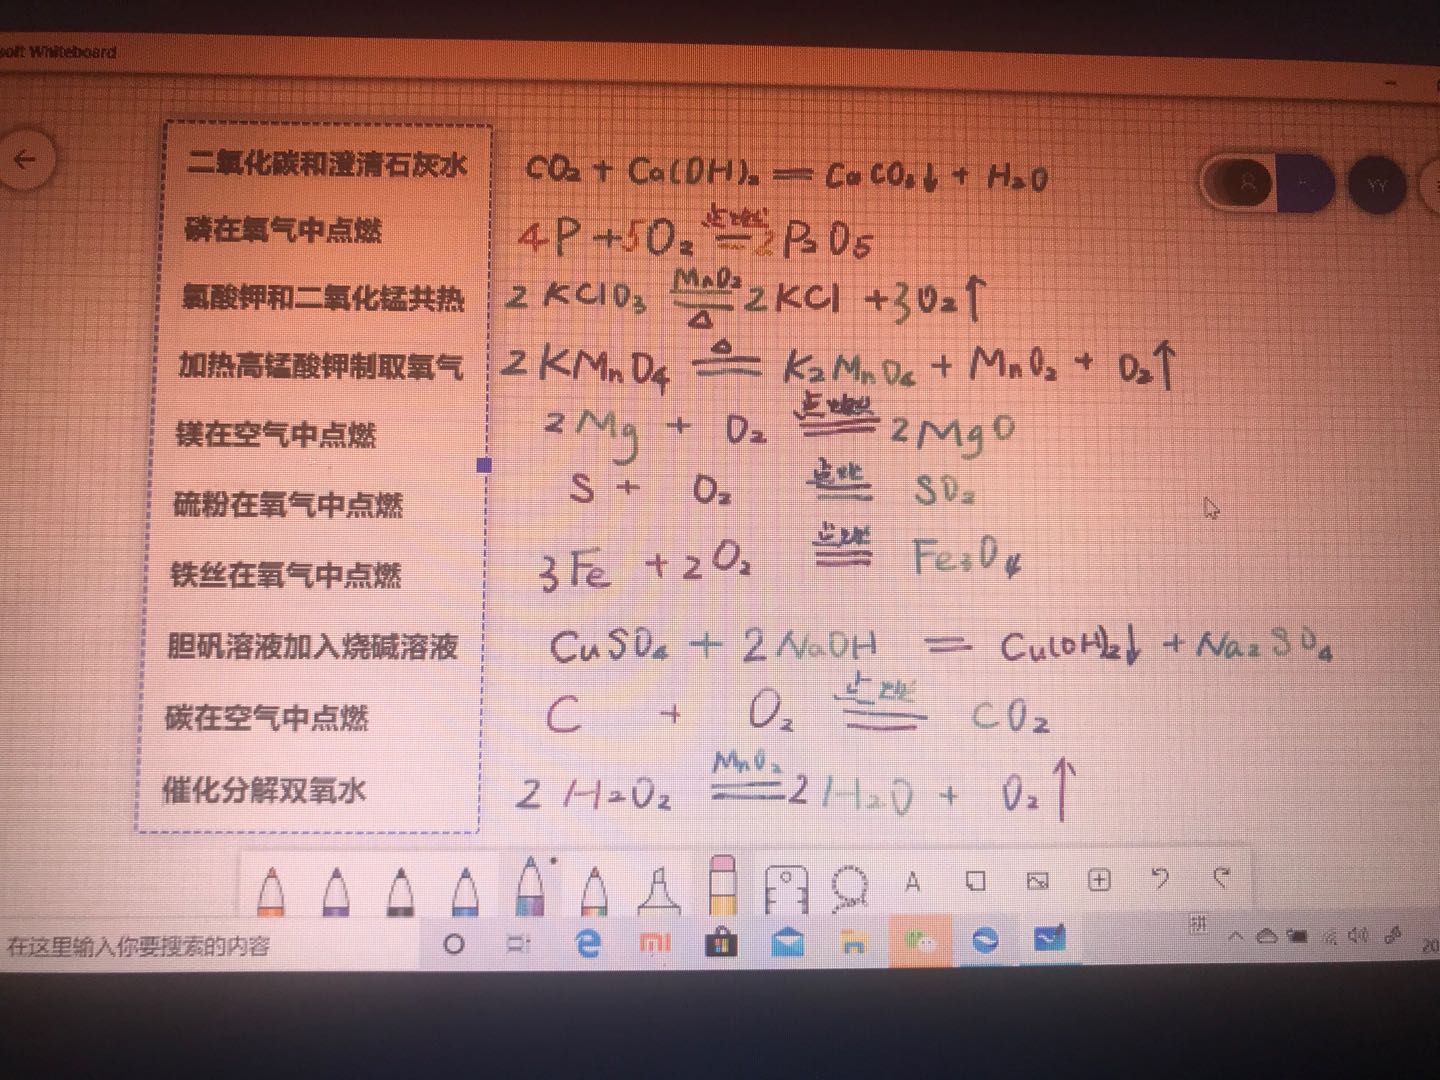 soft Whiteboard
二氧化碳和澄清石灰水 CO₂ + Ca(OH)₂ == CaCO₃↓ + H₂O
磷在氧气中点燃 4P + 5O₂ 点燃== 2P₂O₅
氯酸钾和二氧化锰共热 2KClO₃ MnO₂==△ 2KCl + 3O₂↑
加热高锰酸钾制取氧气 2KMnO₄ △== K₂MnO₄ + MnO₂ + O₂↑
镁在空气中点燃 2Mg + O₂ 点燃== 2MgO
硫粉在氧气中点燃 S + O₂ 点燃== SO₂
铁丝在氧气中点燃 3Fe + 2O₂ 点燃== Fe₃O₄
胆矾溶液加入烧碱溶液 CuSO₄ + 2NaOH == Cu(OH)₂↓ + Na₂SO₄
碳在空气中点燃 C + O₂ 点燃== CO₂
催化分解双氧水 2H₂O₂ MnO₂== 2H₂O + O₂↑
YY
A
在这里输入你要搜索的内容
mi
拼
20